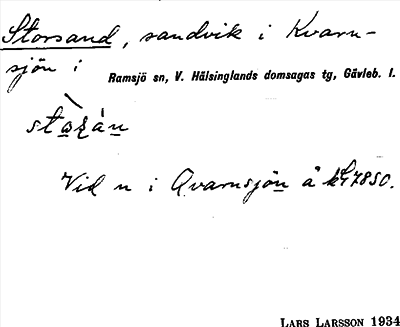 Storsand, sandvik i Kvarn-
sjön i
Ramsjö sn, V. Hälsinglands domsagas tg, Gävleb. l.
Vid n i Qvarnsjön å
LARS LARSSON 1934